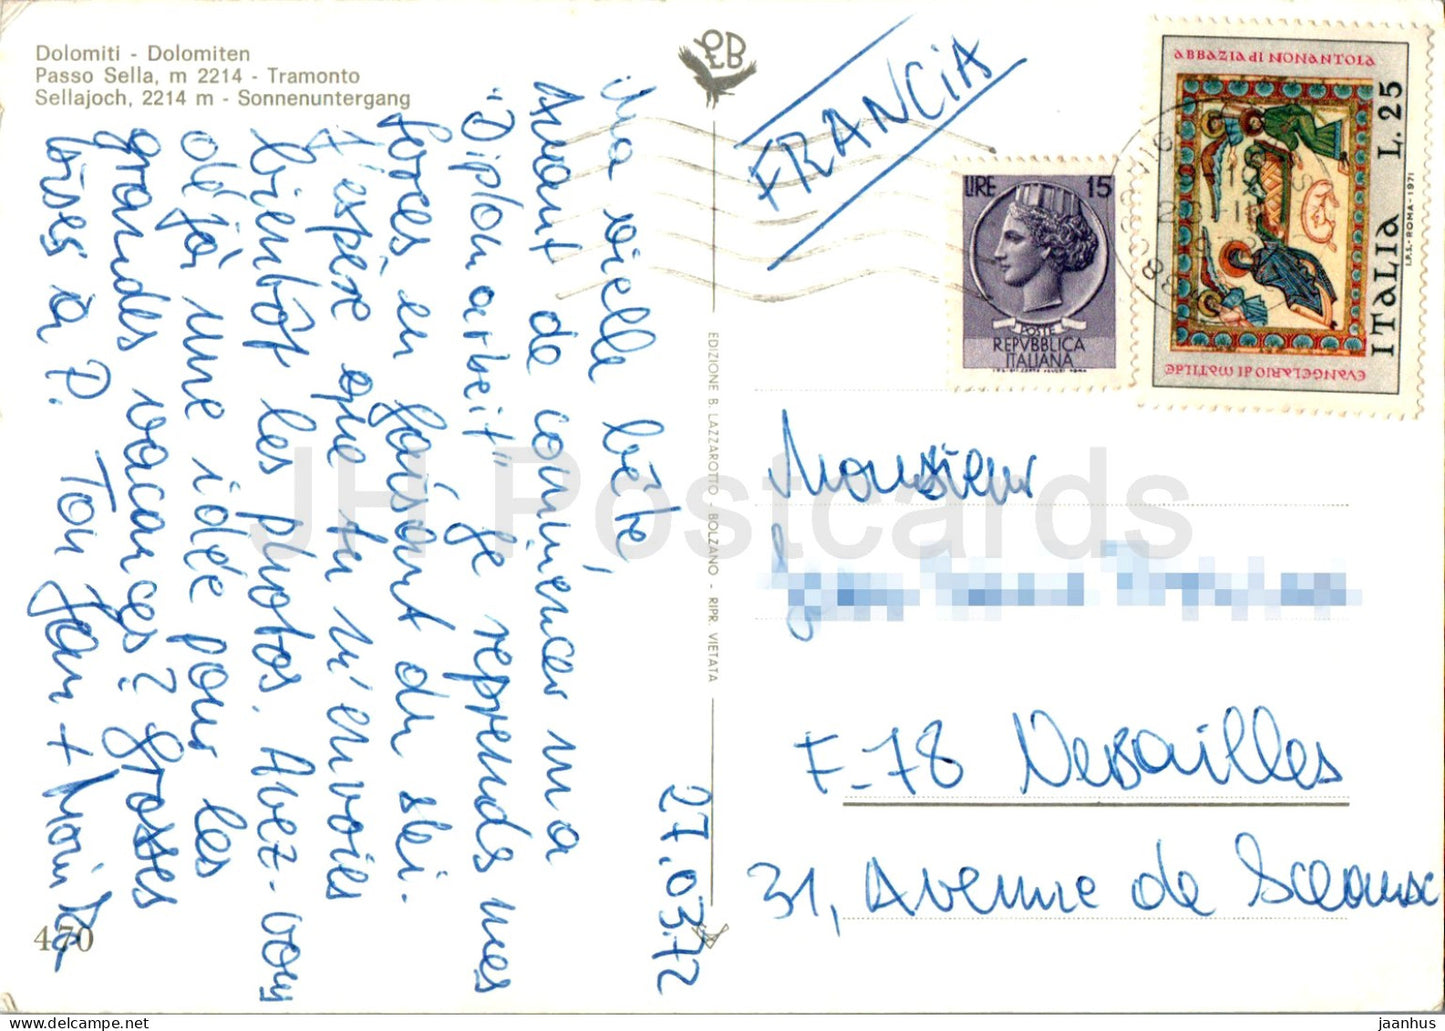 Dolomiti - Dolomiten
Passo Sella, m 2214 - Tramonto
Sellajoch, 2214 m - Sonnenuntergang
27.03.72
Ma vieille bête,
Avant de commencer ma
"Diplomarbeit" je reprends mes
forces en faisant du ski.
J'espère que tu m'envoies
bientôt les photos. Avez-vous
déjà une idée pour les
grandes vacances? Grosses
bises à P. Ton Jan +
470
EDIZIONE B. LAZZAROTTO - BOLZANO - RIPR. VIETATA
LB
FRANCIA
LIRE 15
POSTE
REPVBBLICA
ITALIANA
ABBAZIA di NONANTOLA
ITALIA L. 25
I.P.S.-ROMA-1971
EVANGELARIO di MATILDE
Monsieur
F-78 Versailles
31, Avenue de Sceaux
JH Postcards
www.delcampe.net
jaanhus